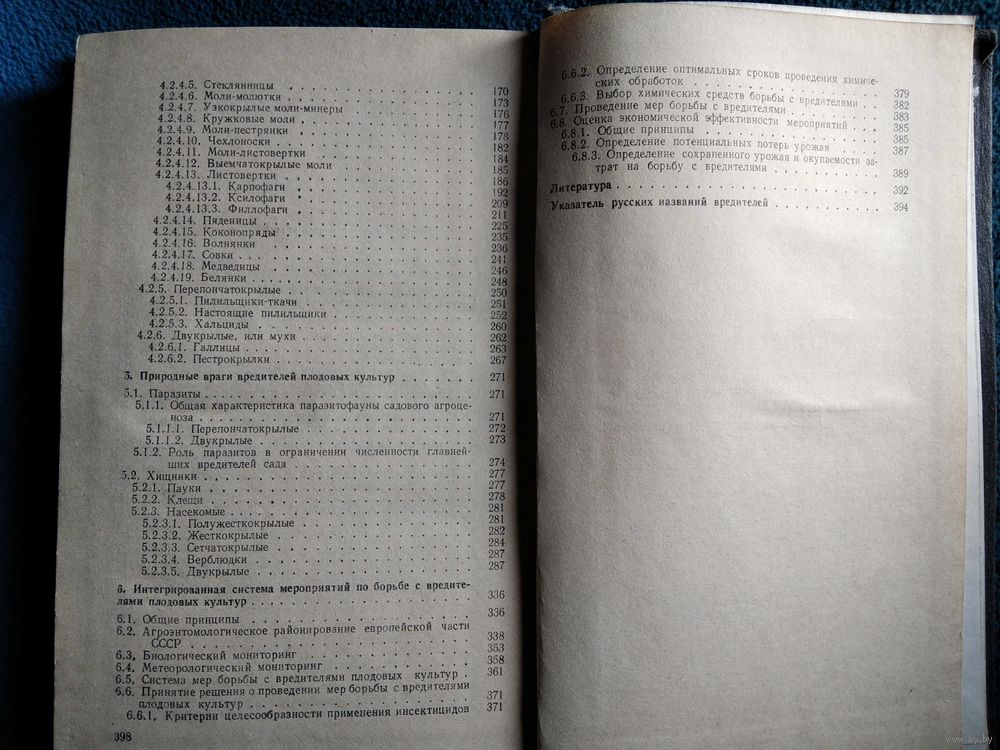 4.2.4.5. Стеклянницы . . . . . . . . . . 170
4.2.4.6. Моли-молютки . . . . . . . . . . 173
4.2.4.7. Узкокрылые моли-минеры . . . . . . . 176
4.2.4.8. Кружковые моли . . . . . . . . . 177
4.2.4.9. Моли-пестрянки . . . . . . . . . 178
4.2.4.10. Чехлоноски . . . . . . . . . . 182
4.2.4.11. Моли-листовертки . . . . . . . . 184
4.2.4.12. Выемчатокрылые моли . . . . . . . 185
4.2.4.13. Листовертки . . . . . . . . . 186
4.2.4.13.1. Карпофаги . . . . . . . . . 192
4.2.4.13.2. Ксилофаги . . . . . . . . . 209
4.2.4.13.3. Филлофаги . . . . . . . . . 211
4.2.4.14. Пяденицы . . . . . . . . . . 225
4.2.4.15. Коконопряды . . . . . . . . . 235
4.2.4.16. Волнянки . . . . . . . . . . 236
4.2.4.17. Совки . . . . . . . . . . . 241
4.2.4.18. Медведицы . . . . . . . . . . 246
4.2.4.19. Белянки . . . . . . . . . . 248
4.2.5. Перепончатокрылые . . . . . . . . . 250
4.2.5.1. Пилильщики-ткачи . . . . . . . . 251
4.2.5.2. Настоящие пилильщики . . . . . . . 252
4.2.5.3. Хальциды . . . . . . . . . . 260
4.2.6. Двукрылые, или мухи . . . . . . . . 262
4.2.6.1. Галлицы . . . . . . . . . . 263
4.2.6.2. Пестрокрылки . . . . . . . . . 267
5. Природные враги вредителей плодовых культур . . . . . . 271
5.1. Паразиты . . . . . . . . . . . . 271
5.1.1. Общая характеристика паразитофауны садового агроце-
ноза . . . . . . . . . . . . . 271
5.1.1.1. Перепончатокрылые . . . . . . . . 272
5.1.1.2. Двукрылые . . . . . . . . . . 273
5.1.2. Роль паразитов в ограничении численности главней-
ших вредителей сада . . . . . . . . . 274
5.2. Хищники . . . . . . . . . . . . 277
5.2.1. Пауки . . . . . . . . . . . . 277
5.2.2. Клещи . . . . . . . . . . . . 278
5.2.3. Насекомые . . . . . . . . . . . 281
5.2.3.1. Полужесткокрылые . . . . . . . . 281
5.2.3.2. Жесткокрылые . . . . . . . . . 282
5.2.3.3. Сетчатокрылые . . . . . . . . . 284
5.2.3.4. Верблюдки . . . . . . . . . . 287
5.2.3.5. Двукрылые . . . . . . . . . . 287
6. Интегрированная система мероприятий по борьбе с вредите-
лями плодовых культур . . . . . . . . . . 336
6.1. Общие принципы . . . . . . . . . . 336
6.2. Агроэнтомологическое районирование европейской части
СССР . . . . . . . . . . . . . 338
6.3. Биологический мониторинг . . . . . . . . 353
6.4. Метеорологический мониторинг . . . . . . . 358
6.5. Система мер борьбы с вредителями плодовых культур . 361
6.6. Принятие решения о проведении мер борьбы с вредителями
плодовых культур . . . . . . . . . . 371
6.6.1. Критерии целесообразности применения инсектицидов 371
398
6.6.2. Определение оптимальных сроков проведения химиче-
ских обработок . . . . . . . . . . 379
6.6.3. Выбор химических средств борьбы с вредителями . . 382
6.7. Проведение мер борьбы с вредителями . . . . . 383
6.8. Оценка экономической эффективности мероприятий . . . 385
6.8.1. Общие принципы . . . . . . . . . 385
6.8.2. Определение потенциальных потерь урожая . . . . 387
6.8.3. Определение сохраненного урожая и окупаемости за-
трат на борьбу с вредителями . . . . . . . 389
Литература . . . . . . . . . . . . . 392
Указатель русских названий вредителей . . . . . . . 394
www.ay.by